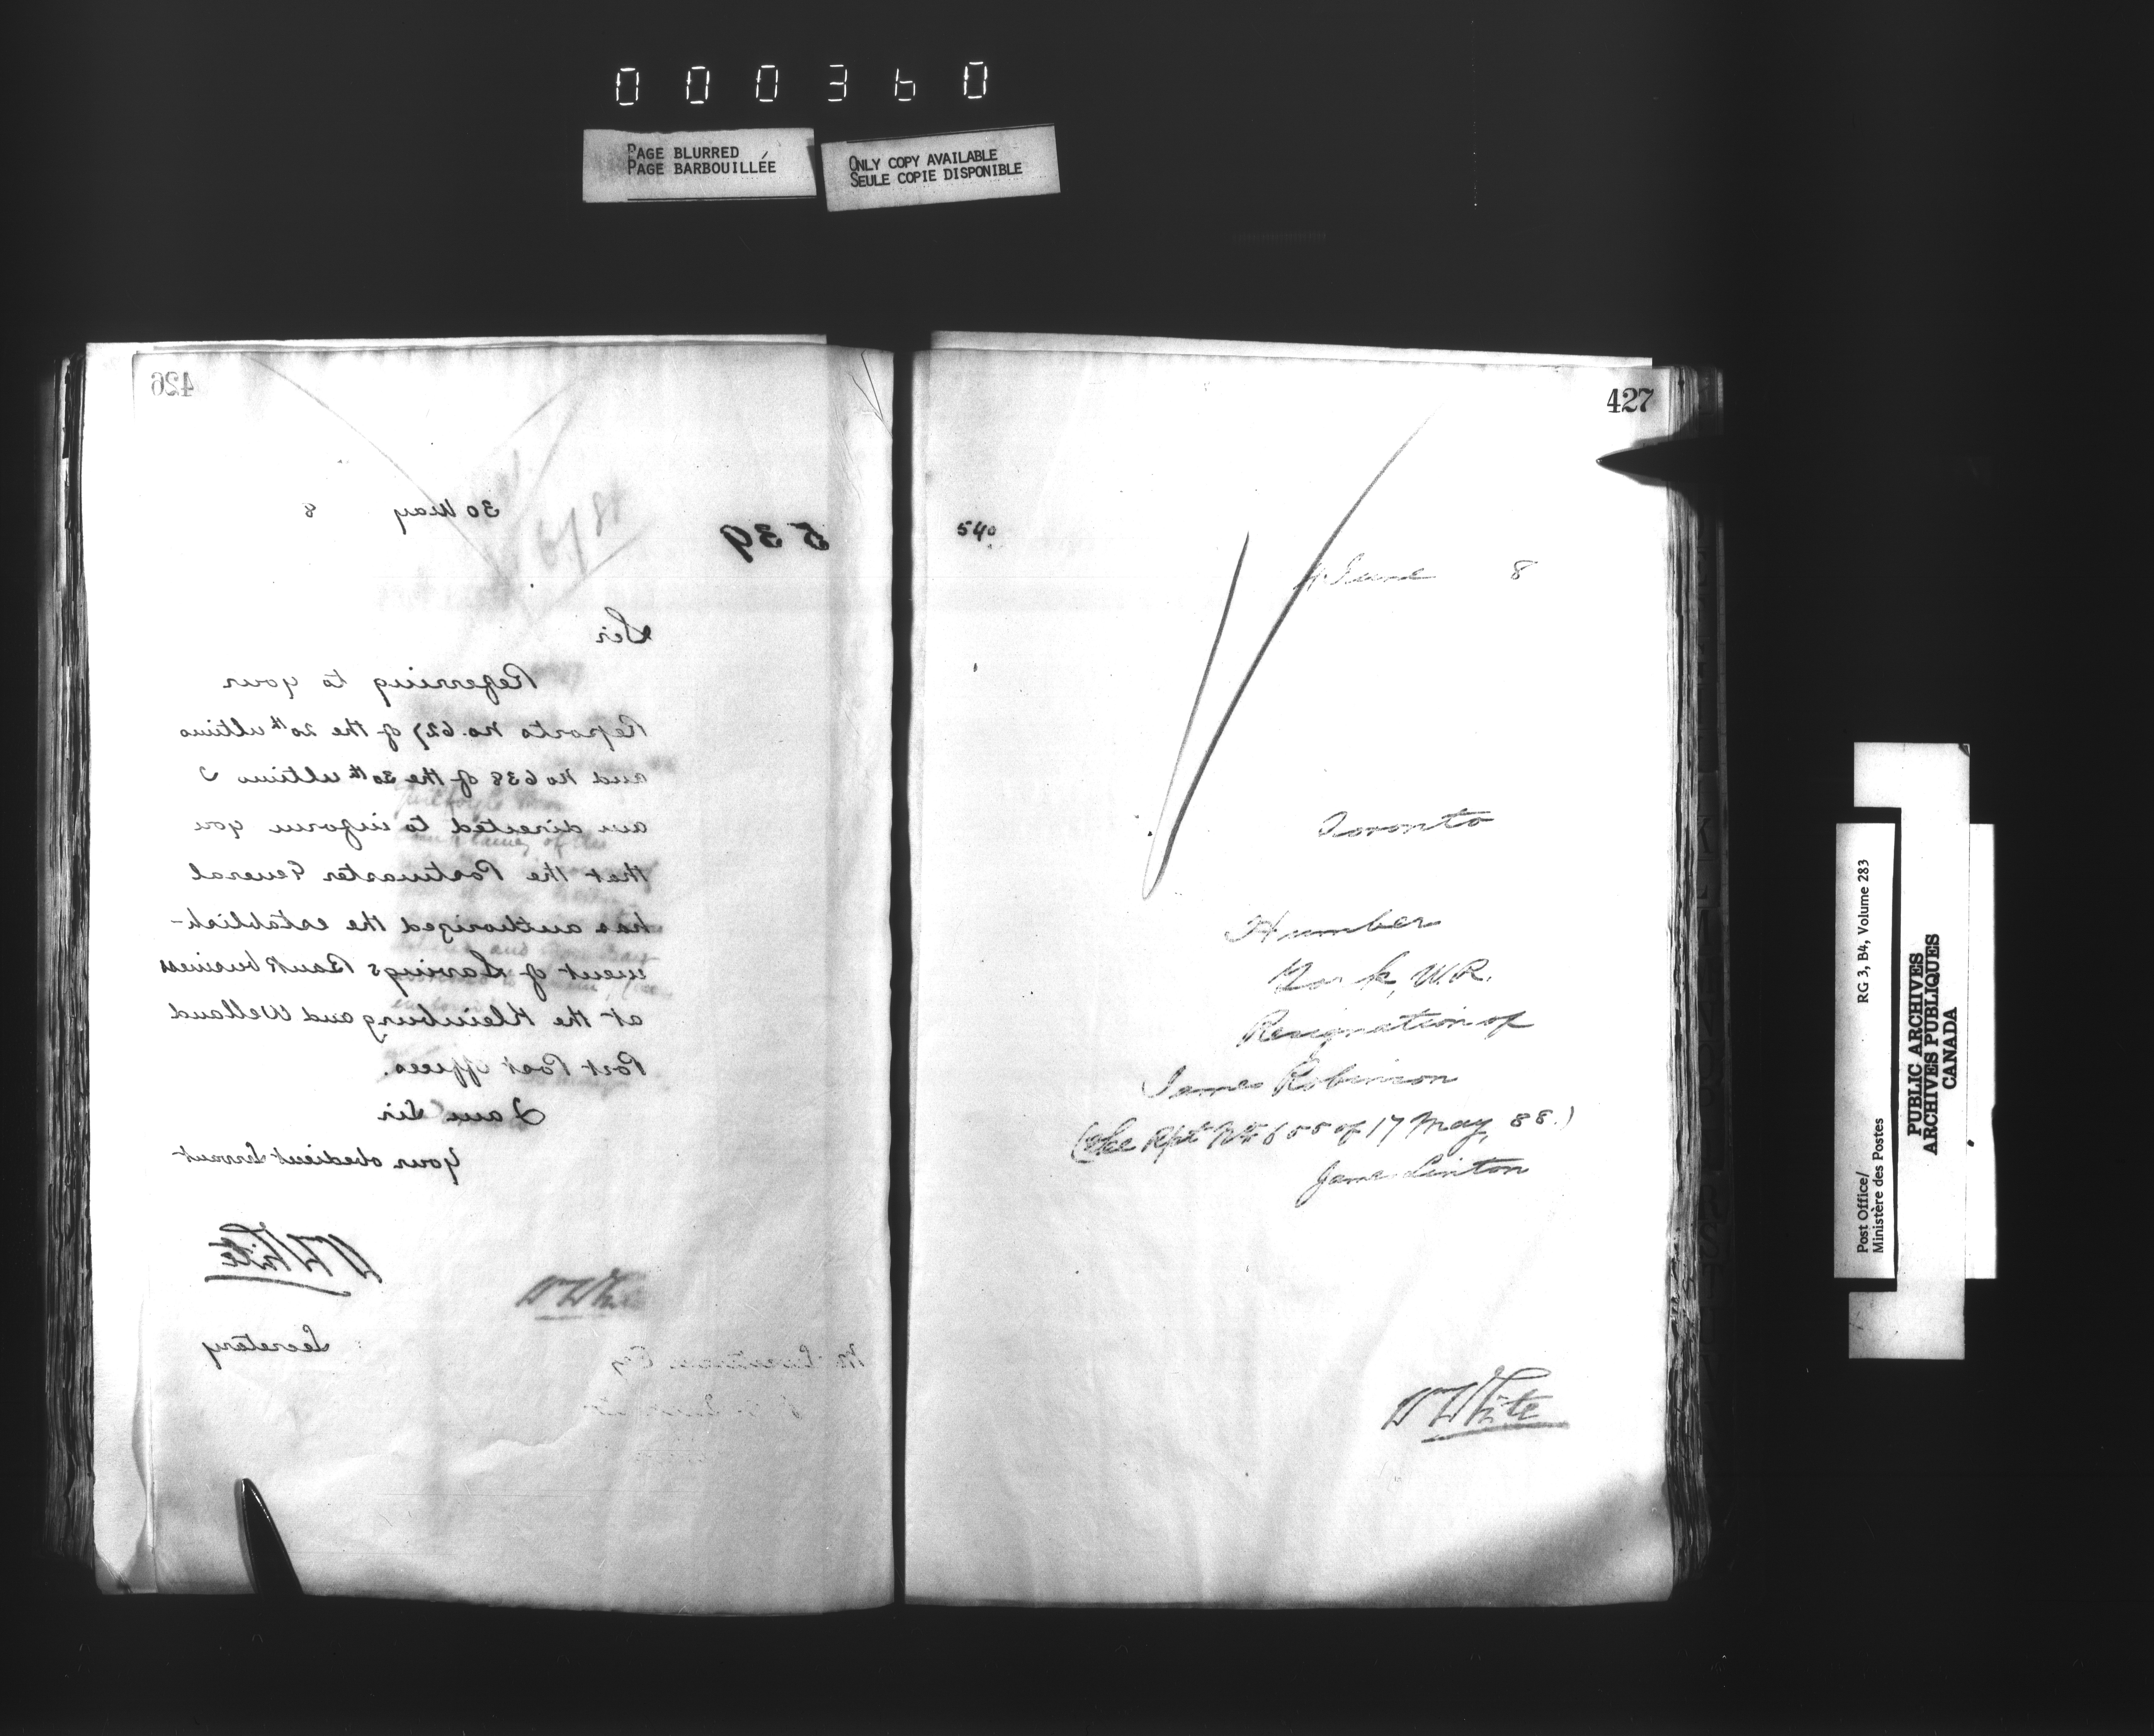 000360
PAGE BLURRED
PAGE BARBOUILLÉE
ONLY COPY AVAILABLE
SEULE COPIE DISPONIBLE
426
30 May 8
539
Sir
Referring to your
Reports No. 627 of the 20th ultimo
and No 638 of the 30th ultimo I
am directed to inform you
that the Postmaster General
has authorized the establish-
ment of Savings Bank business
at the Kleinburg and Welland
Port Post Offices.
I am Sir
Your obedient Servant
W White
Secretary
W White
427
540
4 June 8
Toronto
Humber
York, W.R.
Resignation of
James Robinson
(See Rpt No 655 of 17 May, 88.)
Jane Linton
W White
Post Office/
Ministère des Postes
RG 3, B4, Volume 283
PUBLIC ARCHIVES
ARCHIVES PUBLIQUES
CANADA